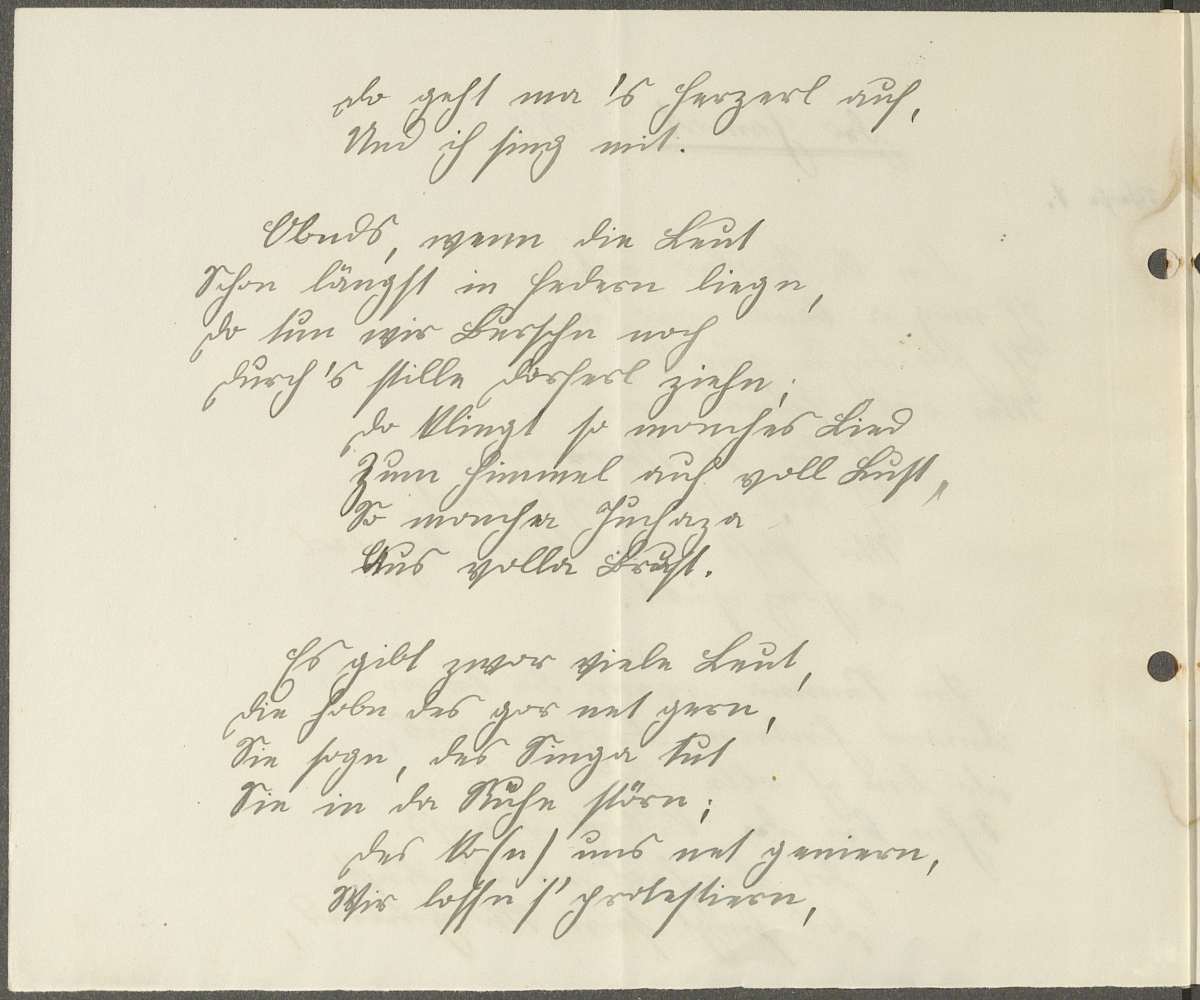 Do geht ma 's Herzerl auf,
Und ich sing mit.
Obnds, wenn die Leut
Schon längst in Federn liegn,
Do tun wir Burschn noch
Durch's stille Dorferl ziehn;
Do klingt so monches Lied
Zum Himmel auf voll Lust,
So moncha Juchaza
Aus volla Brust.
Es gibt zwor viele Leut,
Die hobn des gor net gern,
Sie sogn, des Singa tut
Sie in da Ruhe störn;
Des ko(n) uns net geniern,
Wir lossn 's' protestiern,